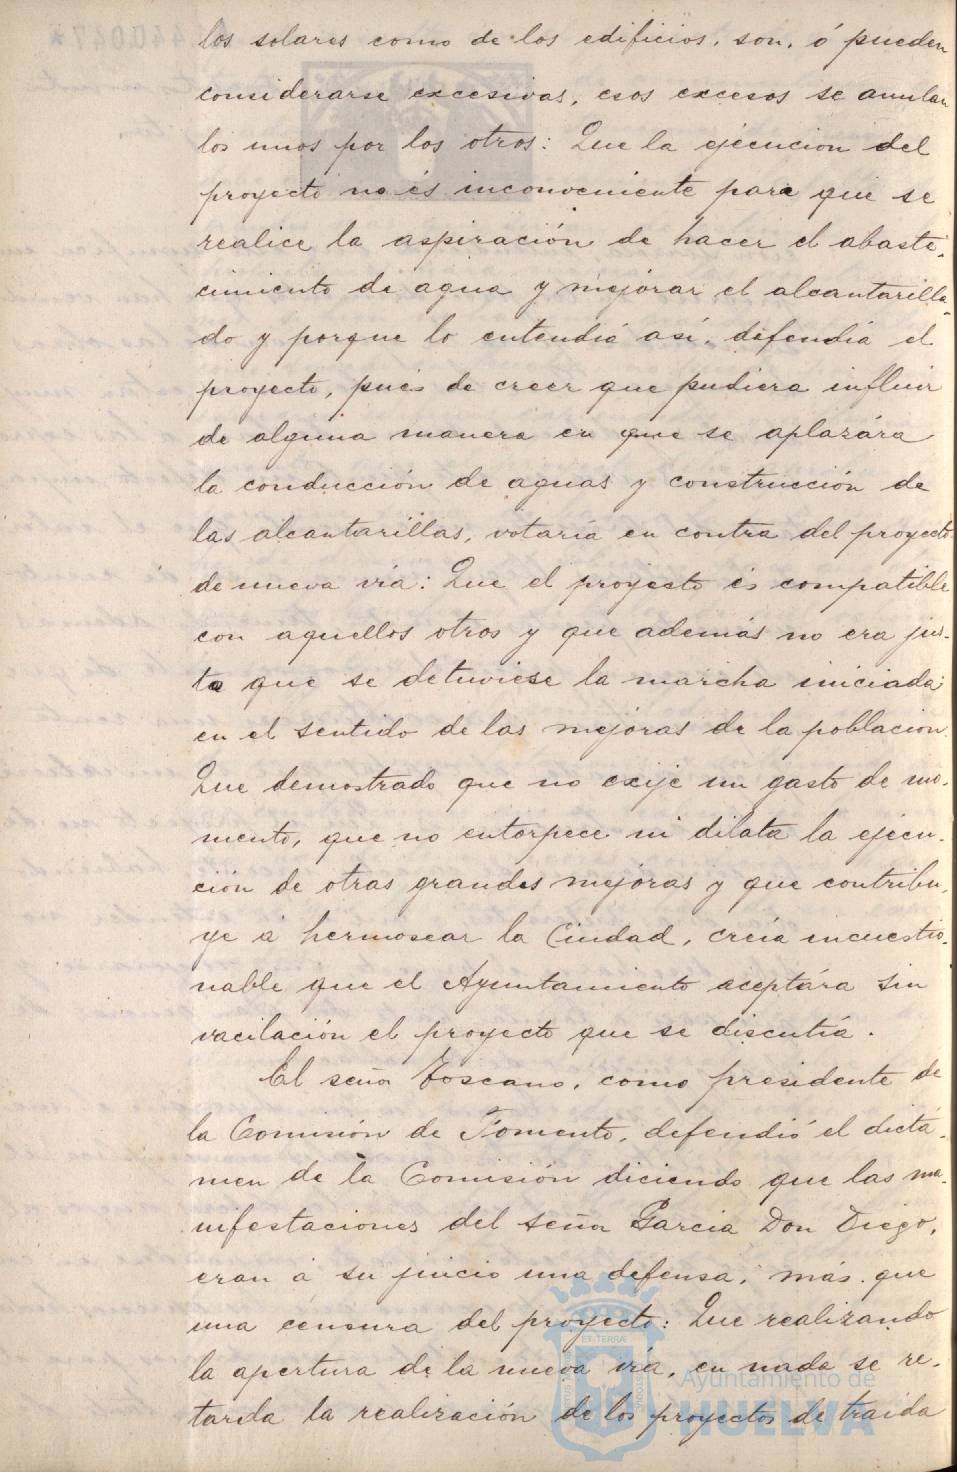 los solares como de los edificios, son, ó pueden
considerarse excesivas, esos excesos se anulan
los unos por los otros: Que la ejecución del
proyecto no és inconveniente para que se
realice la aspiración de hacer el abaste-
cimiento de agua y mejorar el alcantarilla-
do y porque lo entendia así, defendia el
proyecto, pués de creer que pudiera influir
de alguna manera en que se aplazára
la conducción de aguas y construcción de
las alcantarillas, votaría en contra del proyecto
de nueva via: Que el proyecto és compatible
con aquellos otros y que además no era jus-
to que se detuviese la marcha iniciada
en el sentido de las mejoras de la poblacion.
Que demostrado que no exije un gasto de mo-
mento, que no entorpece ni dilata la ejecu-
ción de otras grandes mejoras y que contribu-
ye á hermosear la Ciudad, creía incuestio-
nable que el Ayuntamiento aceptára sin
vacilación el proyecto que se discutía.
El señor Toscano, como presidente de
la Comisión de Fomento, defendió el dictá-
men de la Comisión diciendo que las ma-
nifestaciones del señor Garcia Don Diego,
eran á su juicio una defensa, más que
una censura del proyecto: Que realizando
la apertura de la nueva vía, en nada se re-
tarda la realización de los proyectos de traida
Ayuntamiento de
HUELVA